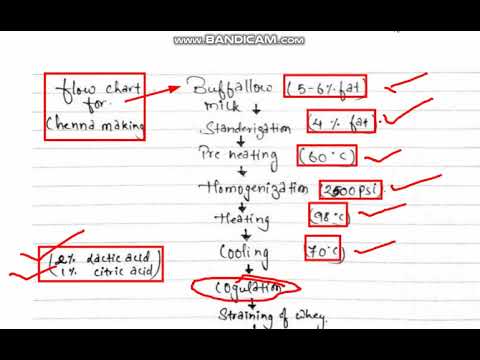 www.BANDICAM.com
flow chart
for
Chenna making
Buffallow (5-6% fat)
milk
Standerigation (4% fat)
Pre heating (60°c)
Homogenization (2500 psi)
Heating (98°c)
Cooling (70°c)
(2% Lactic acid
1% citric acid)
Cogulation
Straining of whey.